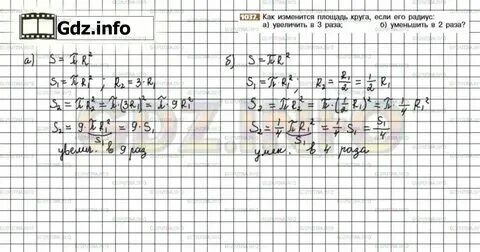 Gdz.info
1037. Как изменится площадь круга, если его радиус:
а) увеличить в 3 раза;    б) уменьшить в 2 раза?
а) S = πR²
S₁ = πR₁² ; R₂ = 3·R₁
S₂ = πR₂² = π·(3R₁)² = π·9R₁²
S₂ = 9·πR₁² = 9·S₁
S₁
увелич. в 9 раз
б) S = πR²
S₁ = πR₁² ; R₂ = R₁/2 = 1/2 R₁
S₂ = πR₂² = π·(1/2 R₁)² = π·1/4 R₁²
S₂ = 1/4 πR₁² = 1/4 S₁ = S₁/4
S₁
умен. в 4 раза
GDZ.INFO